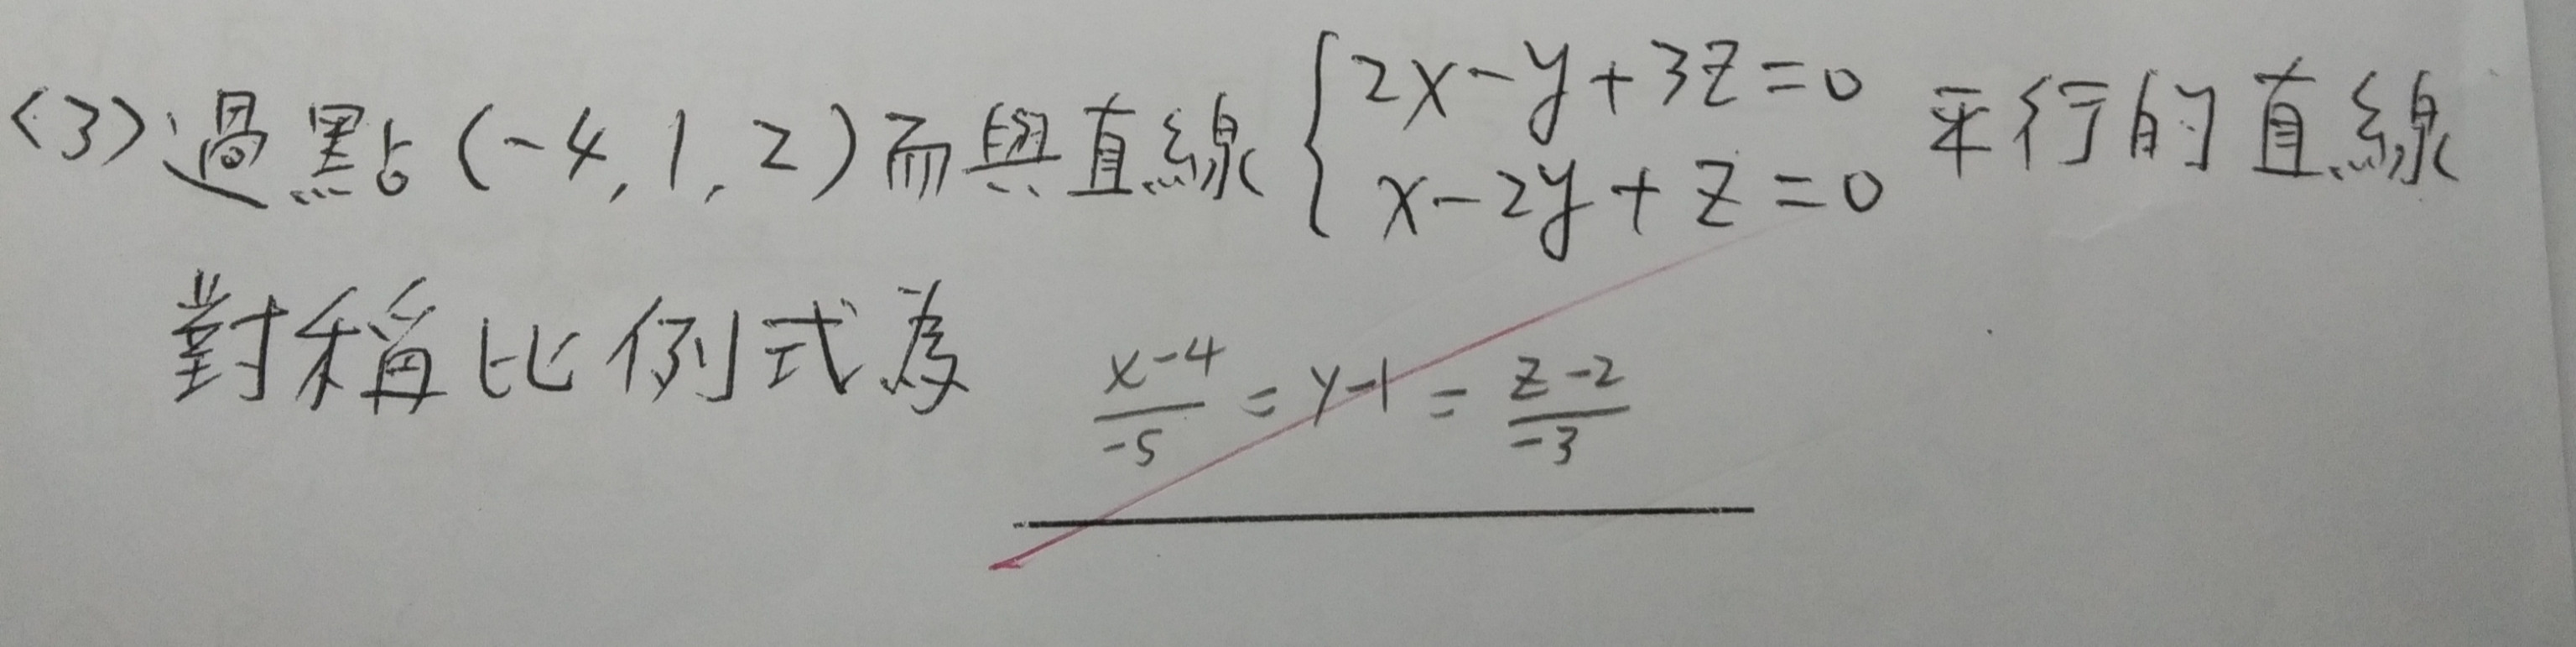 <3>過點(-4,1,2)而與直線{2x-y+3z=0 x-2y+z=0 平行的直線
對稱比例式為 (x-4)/-5 = y-1 = (z-2)/-3